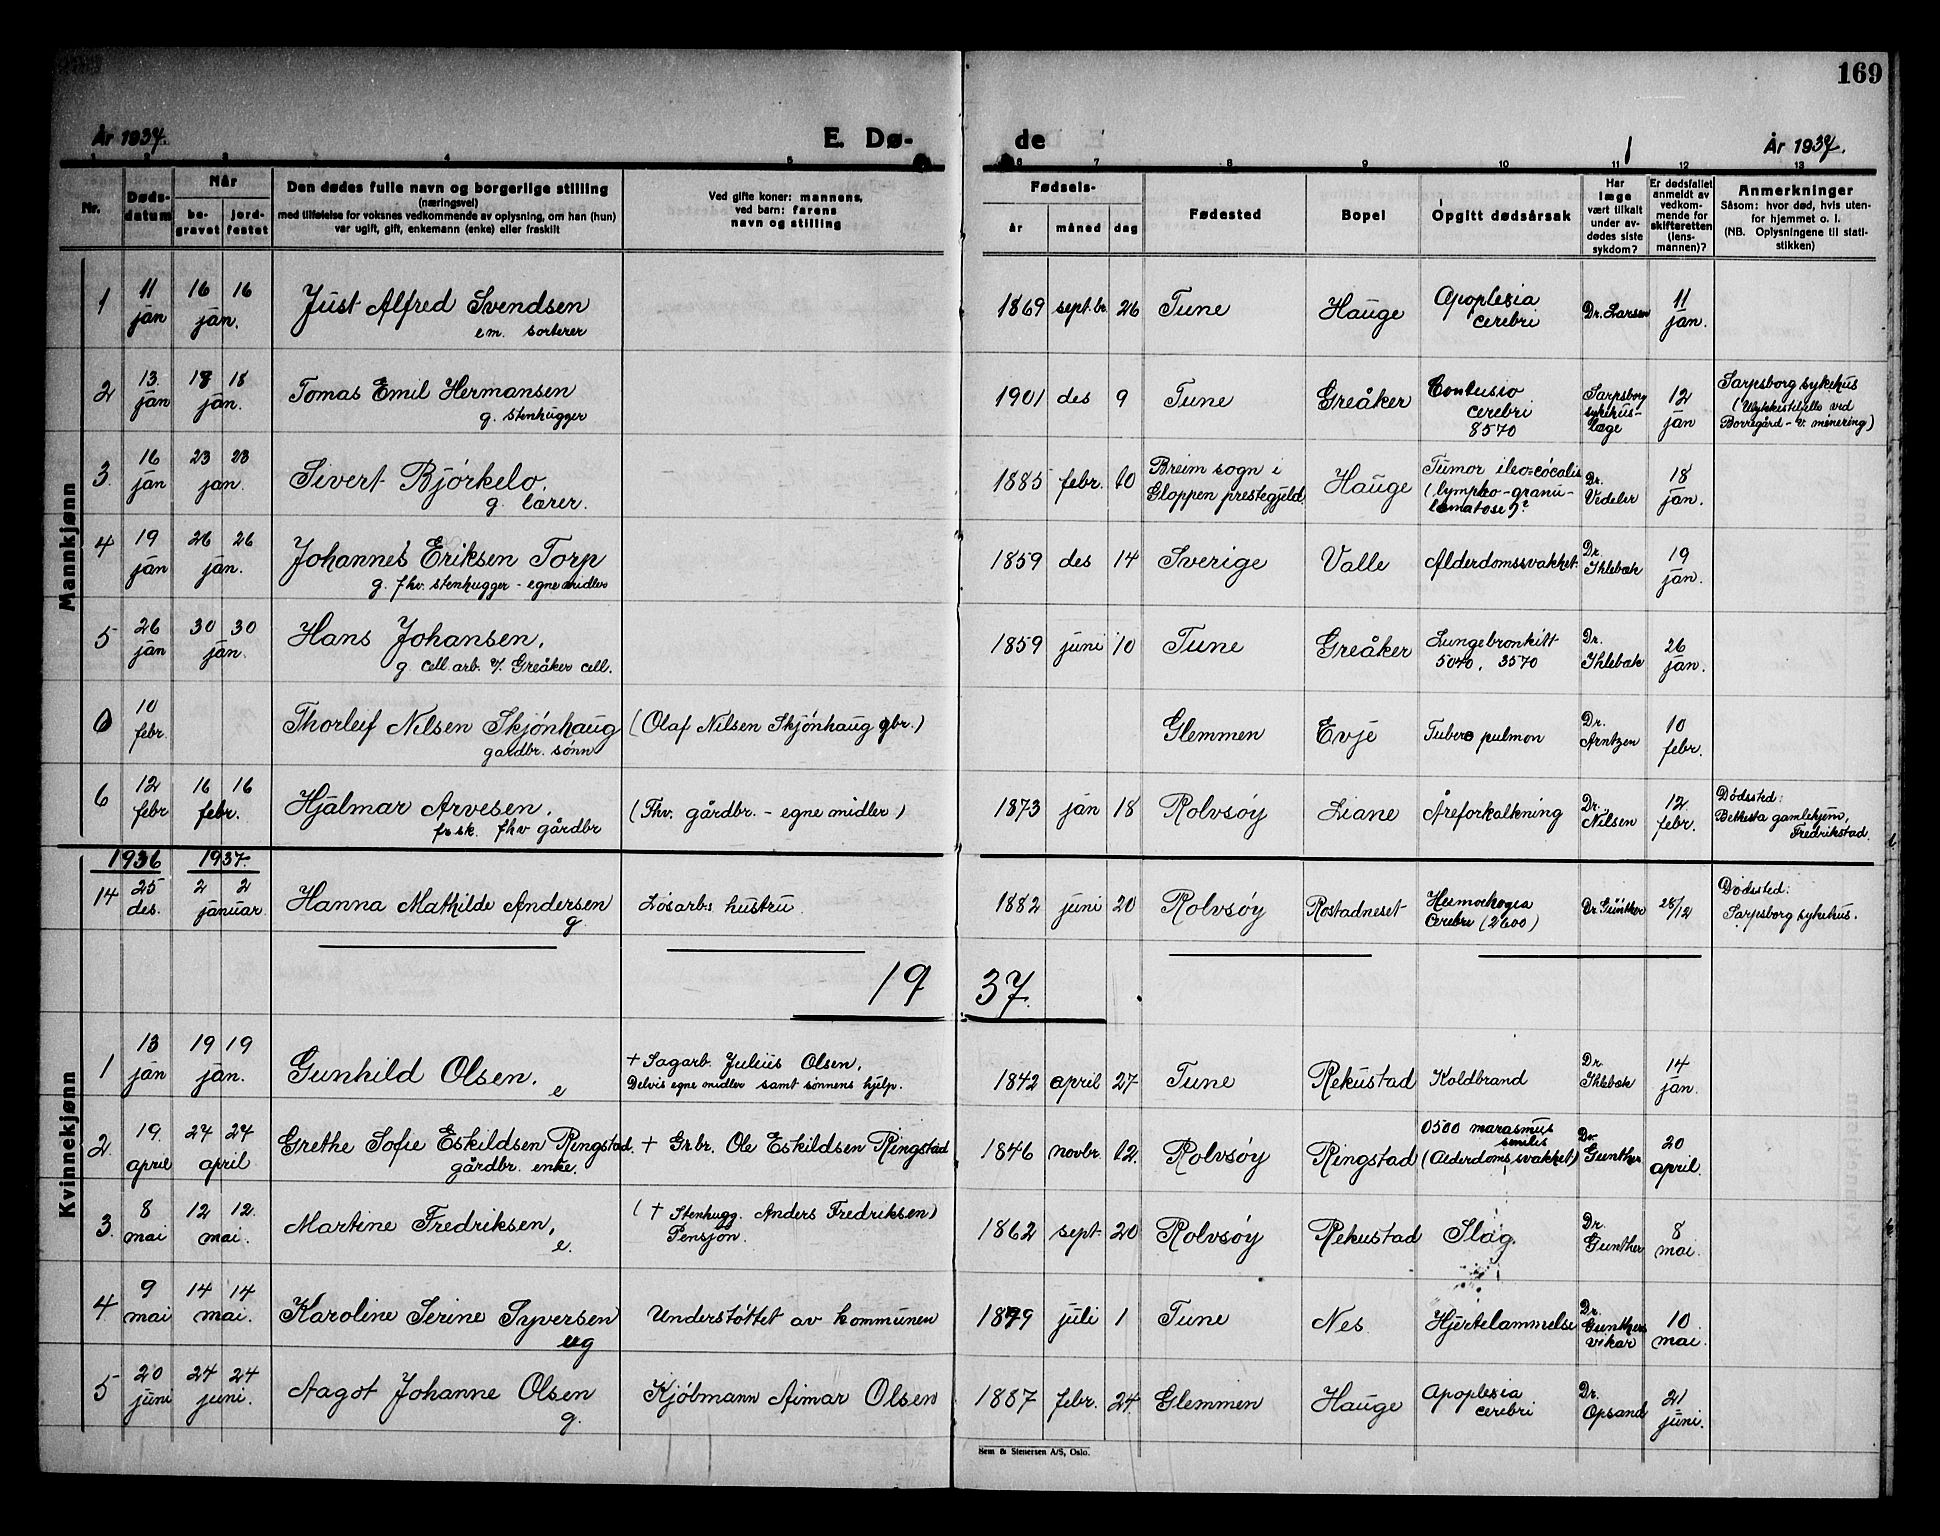 169
År 1937. E. Dø- de År 1937.
1 2 3 4 5 6 7 8 9 10 11 12 13
Nr.
Døds-
datum
Når
be-
gravet
jord-
festet
Den dødes fulle navn og borgerlige stilling
(næringsvei)
med tilføielse for voksnes vedkommende av oplysning, om han (hun)
var ugift, gift, enkemann (enke) eller fraskilt
Ved gifte koner: mannens,
ved barn: farens
navn og stilling
Fødsels-
år måned dag
Fødested
Bopel
Opgitt dødsårsak
Har
læge
vært tilkalt
under av-
dødes siste
sykdom?
Er dødsfallet
anmeldt av
vedkom-
mende for
skifteretten
(lens-
mannen)?
Anmerkninger
Såsom: hvor død, hvis uten-
for hjemmet o. l.
(NB. Oplysningene til stati-
stikken)
Mannkjønn
1 11 jan 16 16 jan. Just Alfred Svendsen
em. sorterer
1869 sept.br. 26 Tune Hauge Apoplesia
cerebri
Dr. Larsen 11 jan.
2 13. jan 18 18 jan. Tomas Emil Hermansen
g. stenhugger
1901 des 9 Tune Greåker Contusio
cerebri
8570
Sarpsborg
sykehus-
læge
12 jan
Sarpsborg sykehus
(Ulykkestilfelle ved
Borregård - v. minering)
3. 16 jan 23 23 jan. Sivert Bjørkelo.
g. lærer.
1885 febr. 10 Breim sogn i
Gloppen prestegjeld.
Hauge Tumor ileo-cøcalis
(lympho-granu-
lomatose)?
Dr.
Vedeler 18 jan.
4 19 jan 26 26 jan. Johannes Eriksen Torp
g. fhv. stenhugger - egne midler
1859 des 14 Sverige Valle Alderdomssvakket.
Dr.
Ihlebæk 19 jan.
5 26 jan 30 30 jan. Hans Johansen.
g. cell. arb. v/. Greåker cell.
1859 juni 10 Tune Greåker Lungebronkitt
5040, 3570
Dr.
Ihlebæk 26 jan.
0 10 febr. Thorleif Nilsen Skjønhaug
gardbr. sønn
(Olaf Nilsen Skjønhaug gbr.)
Glemmen Evje Tuberc pulmon
Dr.
Arntzen 10 febr.
6 12 febr 16 16 febr. Hjalmar Arvesen.
frsk. fhv gårdbr
(Fhv. gårdbr. - egne midler)
1873 jan 18 Rolvsøy Liane Åreforkalkning
Dr.
Nilsen 12. febr.
Dødssted:
Bethesta gamlehjem,
Fredrikstad.
1936 1937.
14 25 des. 2 2 januar. Hanna Mathilde Andersen
g.
Løsarb.s hustru
1882 juni 20 Rolvsøy Rostadneset Hemorhogia
Cerebri (2600)
Dr. Günther 28/12
Dødssted:
Sarpsborg sykehus.
19 37.
Kvinnekjønn
1 13 jan 19 19 jan. Gunhild Olsen.
e
+ Sagarb. Julius Olsen.
Delvis egne midler samt sønnens hjelp.
1842 april 27 Tune Rekustad Koldbrand
Dr.
Ihlebæk 14 jan.
2. 19. april 24 24 april Grethe Sofie Eskildsen Ringstad.
gårdbr. enke.
+ Gr.br. Ole Eskildsen Ringstad
1846 novbr. 12. Rolvsøy Ringstad 0500 marasmus
senilis
(Alderdomssvakket)
Dr.
Gunther 20 april.
3. 8 mai 12 12. mai. Martine Fredriksen,
e.
(+ Stenhugg. Anders Fredriksen)
Pensjon.
1862 sept. 20 Rolvsøy Rekustad Slag.
Dr.
Gunther 8 mai.
4 9 mai 14 14 mai. Karoline Serine Syversen
ug
Understøttet av kommunen
1879 juli 1 Tune Nes Hjertelammelse
Dr.
Gunthers
vikar 10 mai.
5 20 juni 24 24 juni. Aagot Johanne Olsen
g.
Kjøbmann Aimar Olsen
1887 febr. 24. Glemmen Hauge Apoplesia
cerebri
Dr.
Opsand 21 juni.
Sem & Stenersen A/S, Oslo.